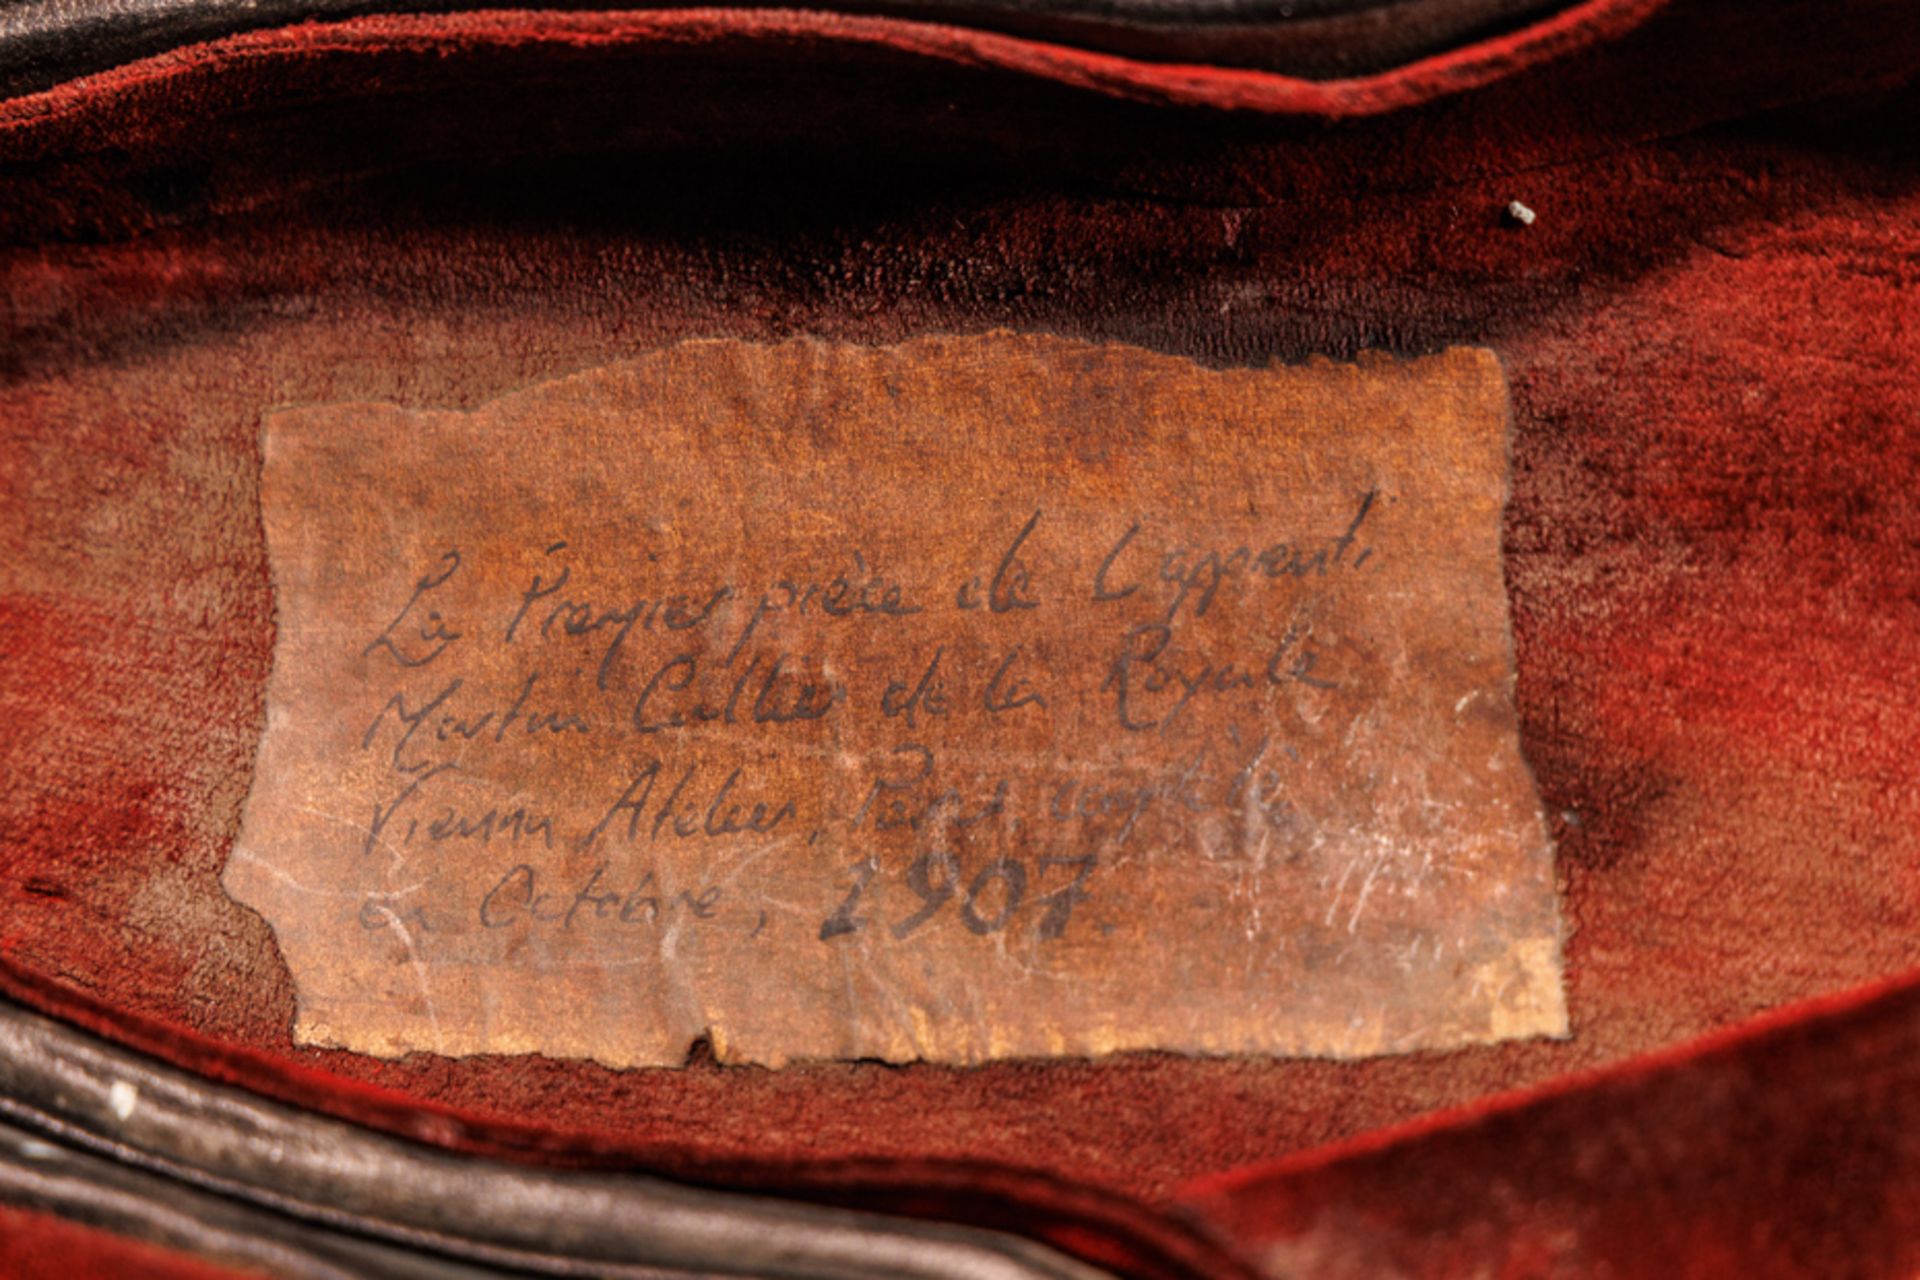 La Premier pièce de L'apprenti
Martin Cullier de la Royale
Vienna Atelier, Paris, complété
en Octobre, 1907.